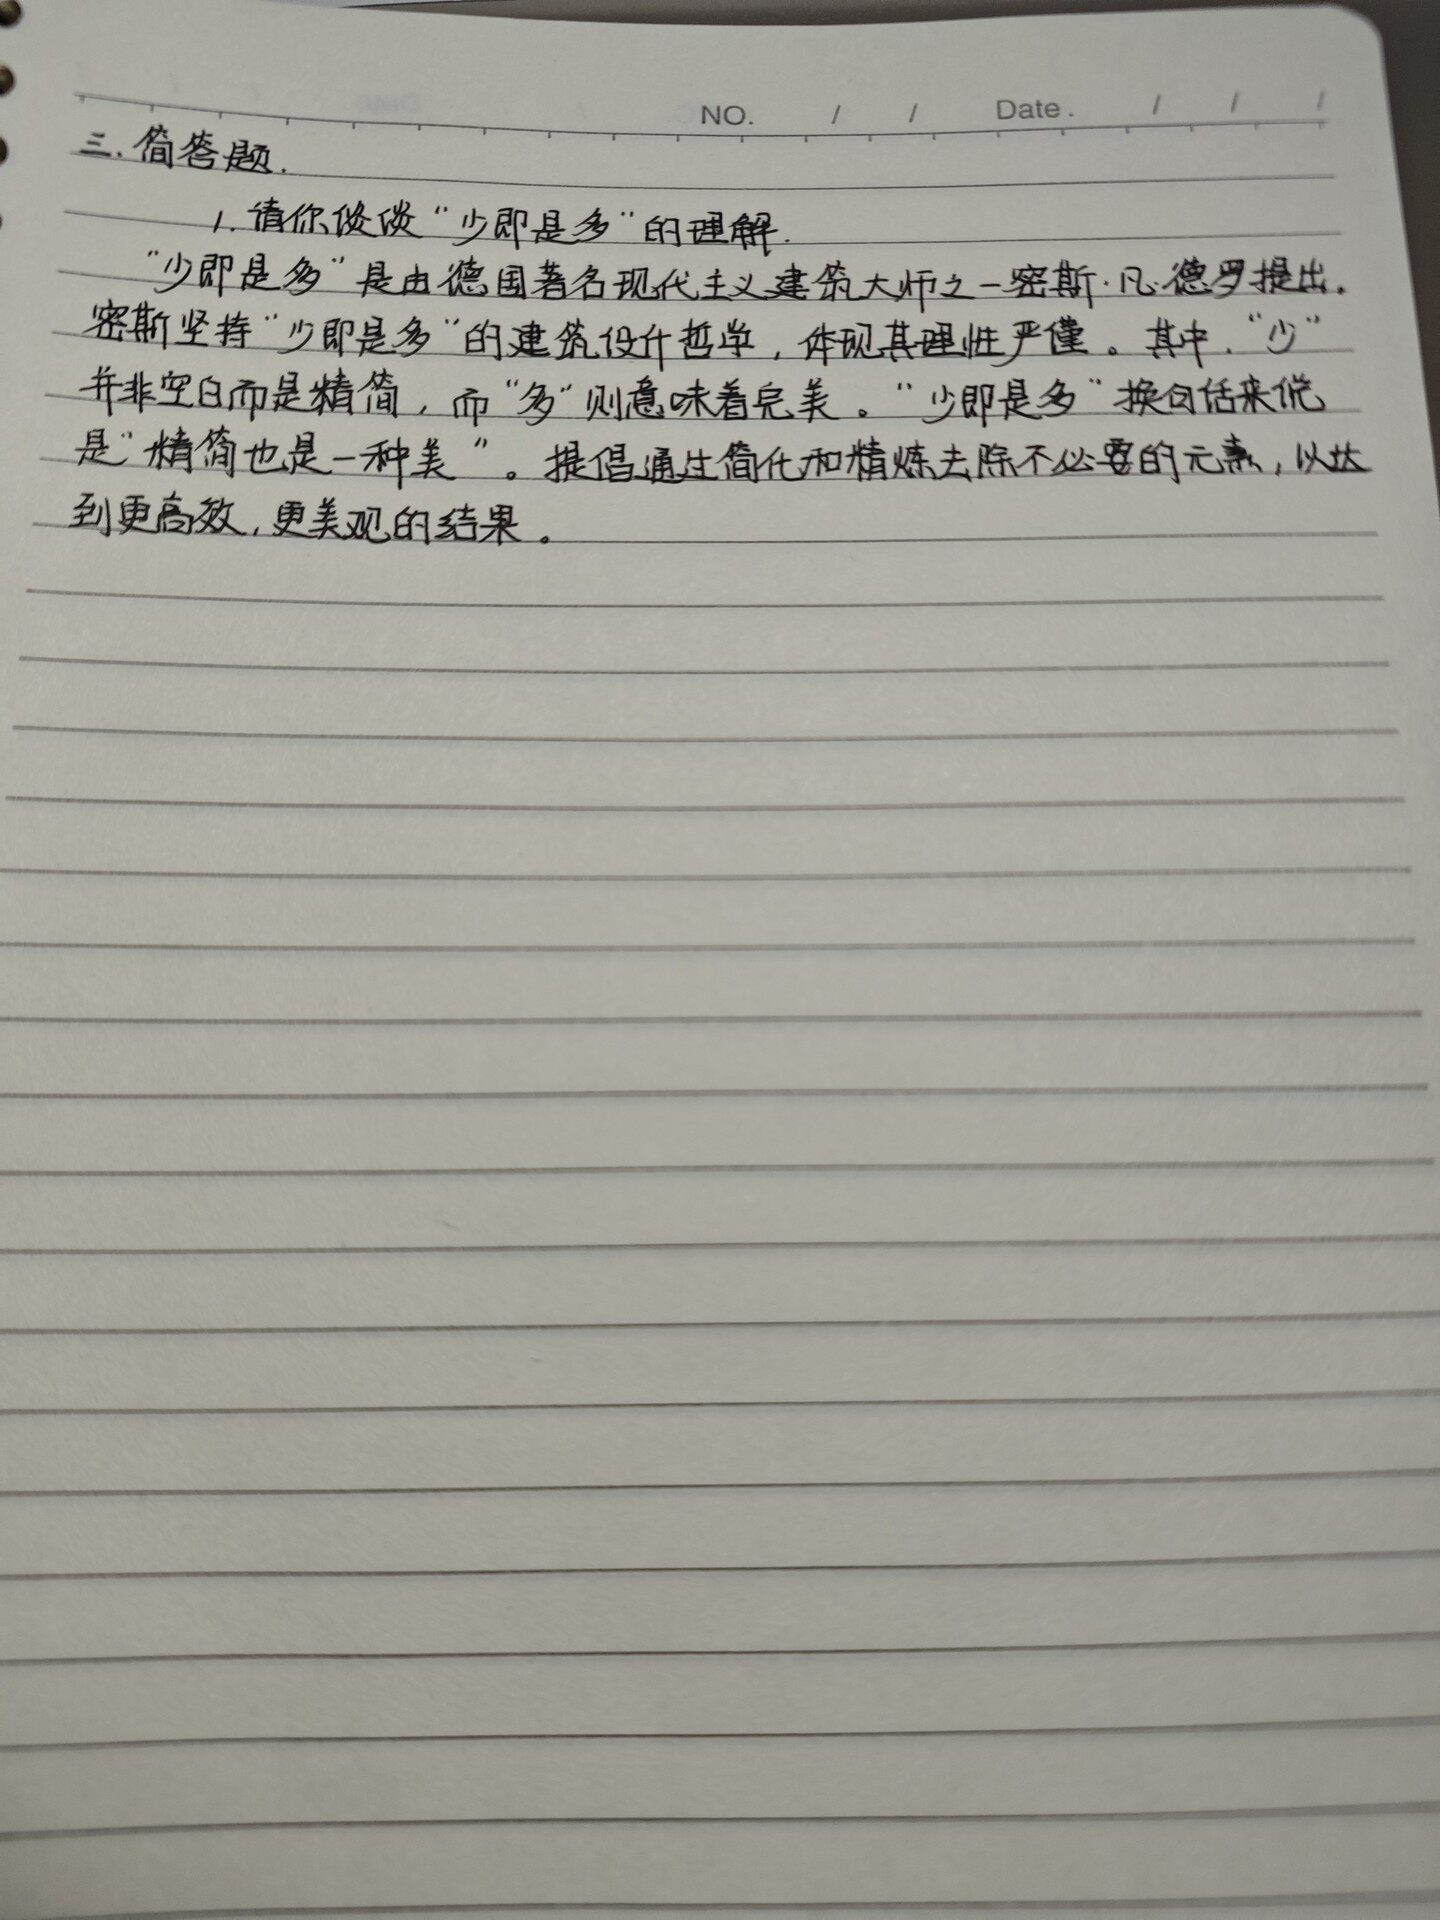 NO. / / Date. / / /
三.简答题.
1.请你谈谈“少即是多”的理解.
“少即是多”是由德国著名现代主义建筑大师之一密斯·凡·德罗提出.
密斯坚持“少即是多”的建筑设计哲学,体现其理性严谨。其中,“少”
并非空白而是精简,而“多”则意味着完美。“少即是多”换句话来说
是“精简也是一种美”。提倡通过简化和精炼去除不必要的元素,以达
到更高效,更美观的结果。